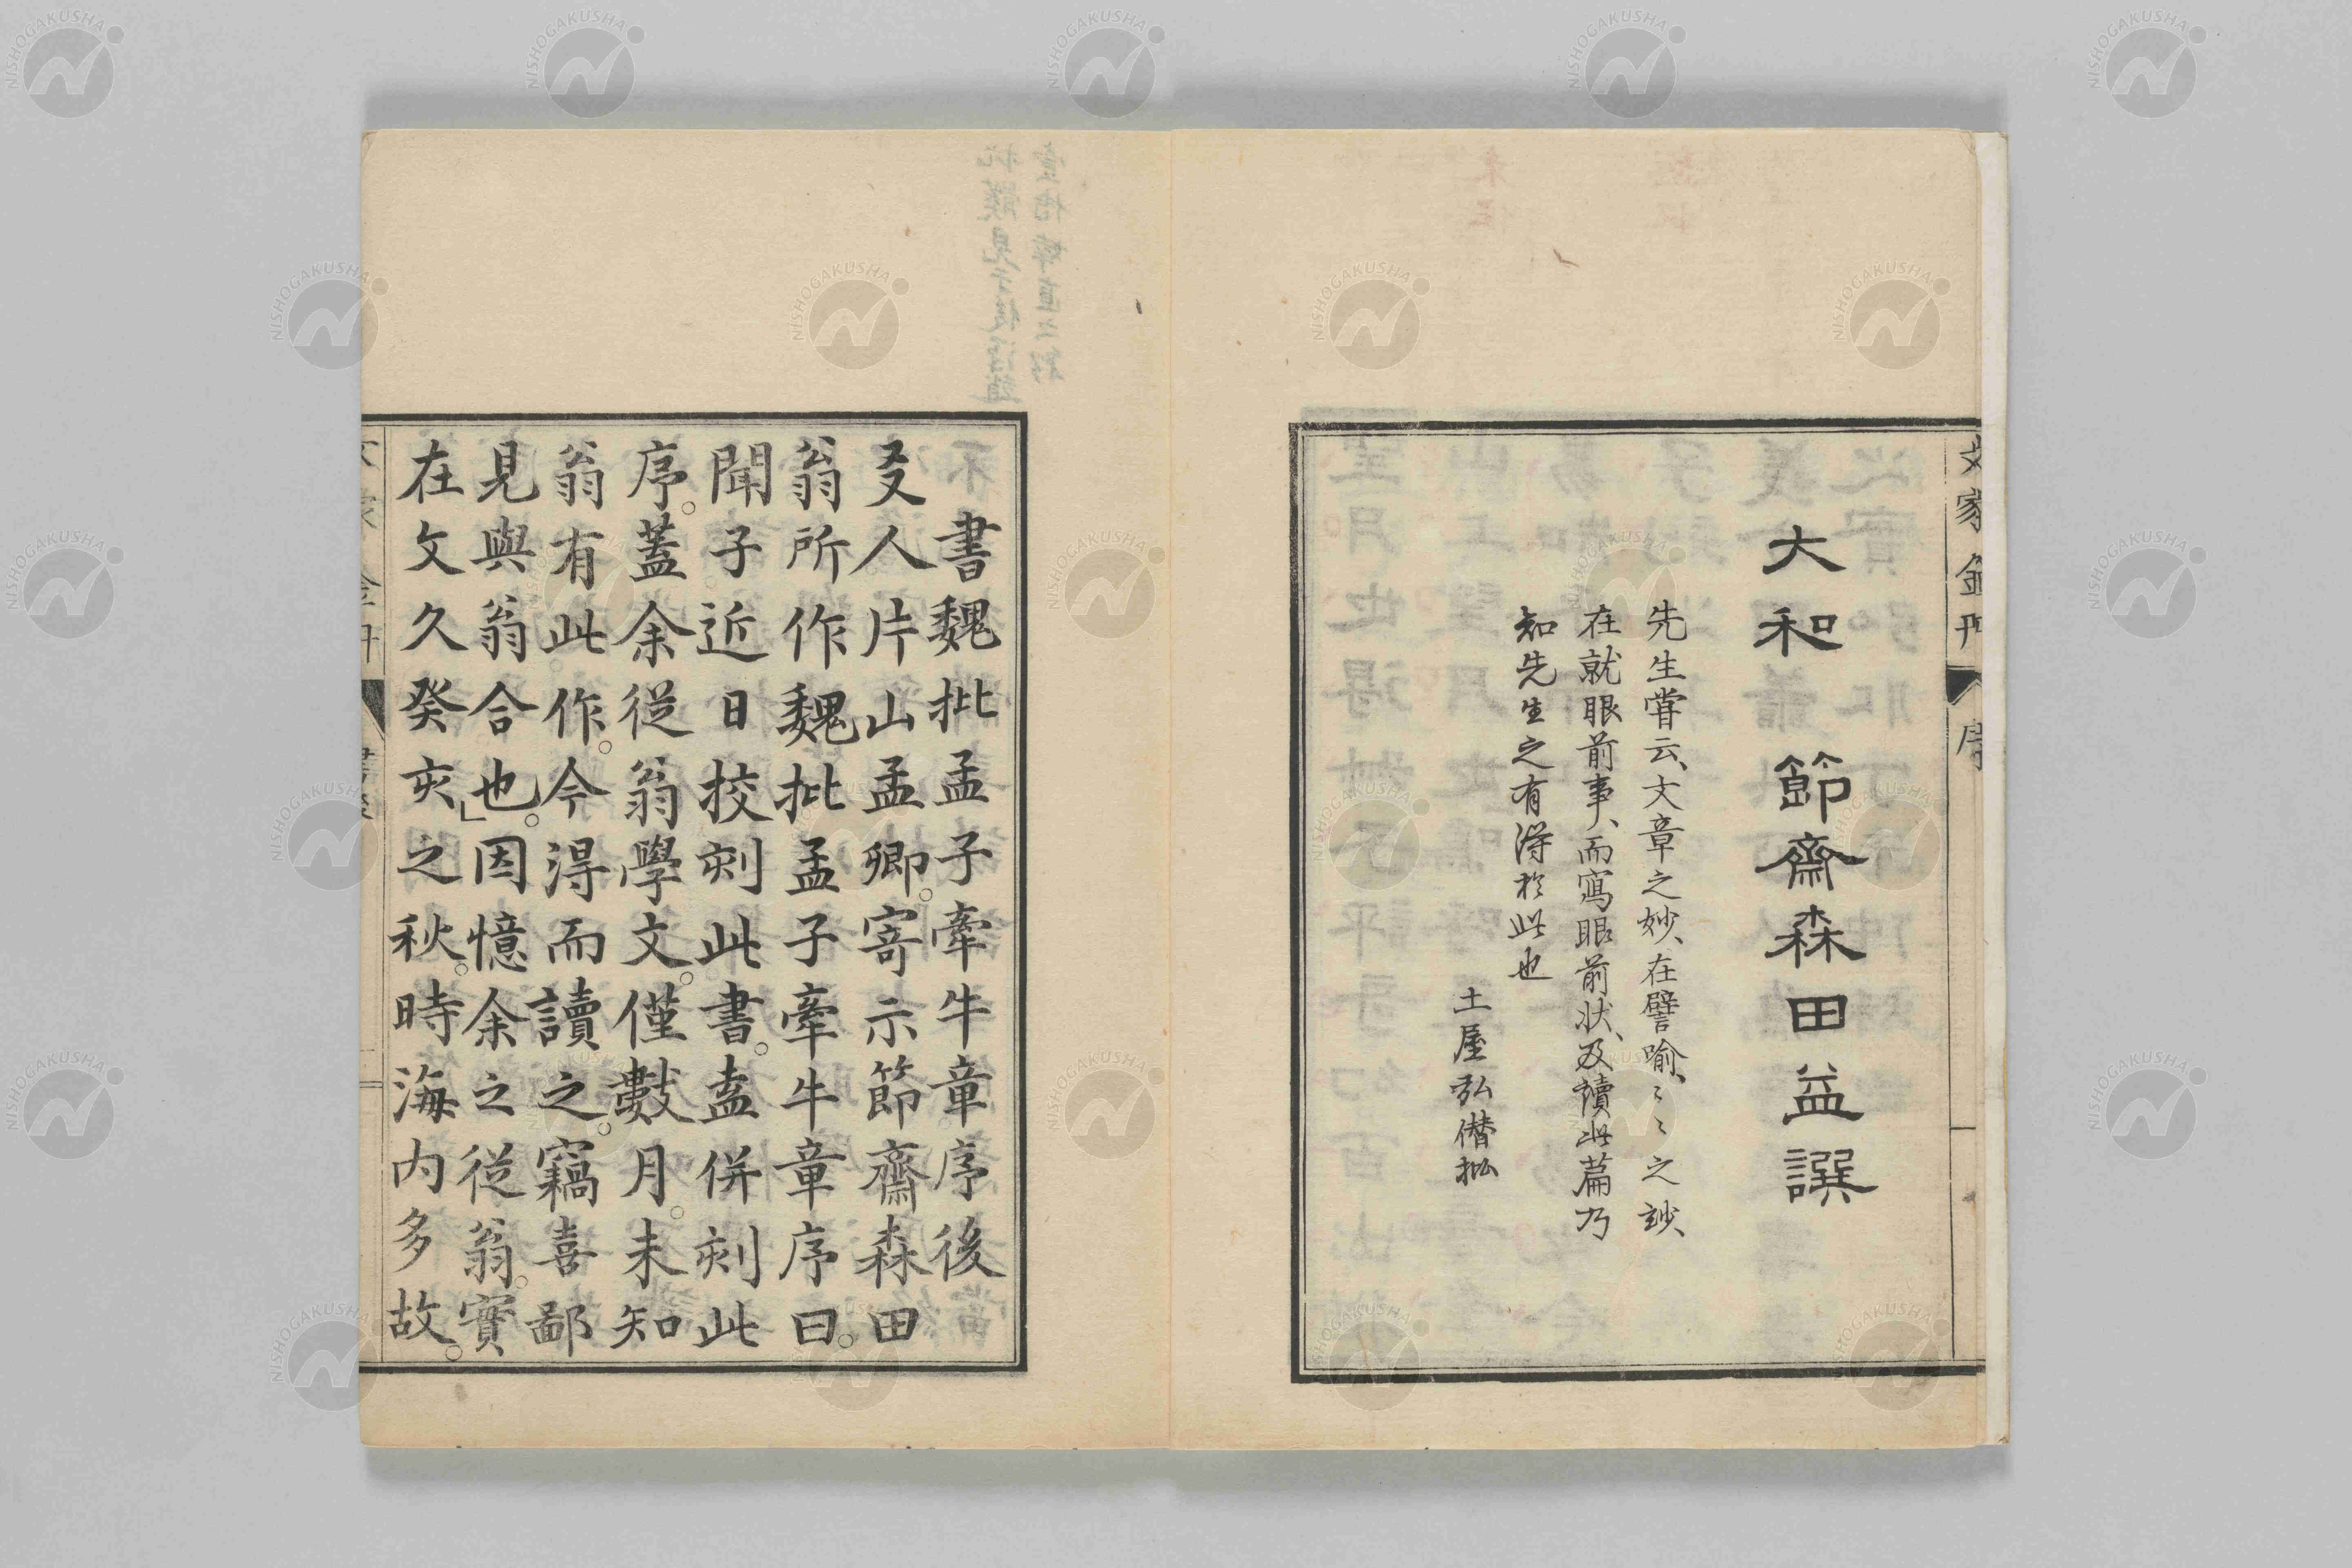 大和 節齋森田益譔
先生嘗云、文章之妙、在譬喩、〻〻之玅、
在就眼前事、而寫眼前状、及讀此篇乃
知先生之有得於此也
土屋弘僣批
文家金丹 序
書魏批孟子牽牛章序後
友人片山孟卿。寄示節齋森田
翁所作魏批孟子牽牛章序曰。
聞子近日挍刻此書。盍併刻此
序。蓋余從翁學文。僅數月。未知
翁有此作。今得而讀之。竊喜鄙
見與翁合也。」因憶余之從翁。實
在文久癸亥之秋。時海内多故。
NISHOGAKUSHA